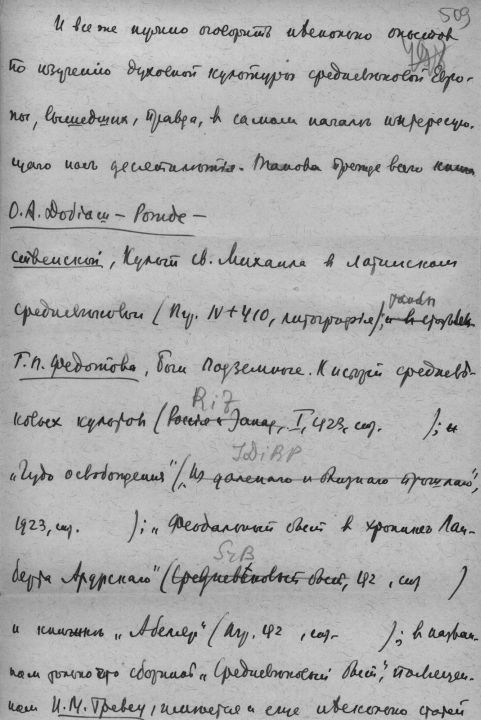 509
И все же нужно оговорить несколько опытов
по изучению духовной культуры средневековой Евро-
пы, вышедших, правда, в самом начале интересую-
щаго нас десятилетия. Такова прежде всего книга
О.А. Добиаш - Рожде-
ственской, Культ св. Михаила в латинском
средневековьи (Птр. IV + 410, литография);
Г.П. Федотова, Боги подземные. К истории средневе-
RiZ
ковых культов (Россия и Запад, I, 1923, стр. ); и
JDiBP
„Чудо освобождения" („Из далекаго и близкаго прошлаго",
1923, стр. ); „Феодальный быт в хронике Лам-
SrB
берта Ардрскаго" (Средневековый быт, 192 , стр )
и книжка „Абеляр" (Птр. 192 , стр. ); в назван-
ном только что сборнике „Средневековый быт", посвящен-
ном И.М. Гревсу, имеются и еще несколько статей